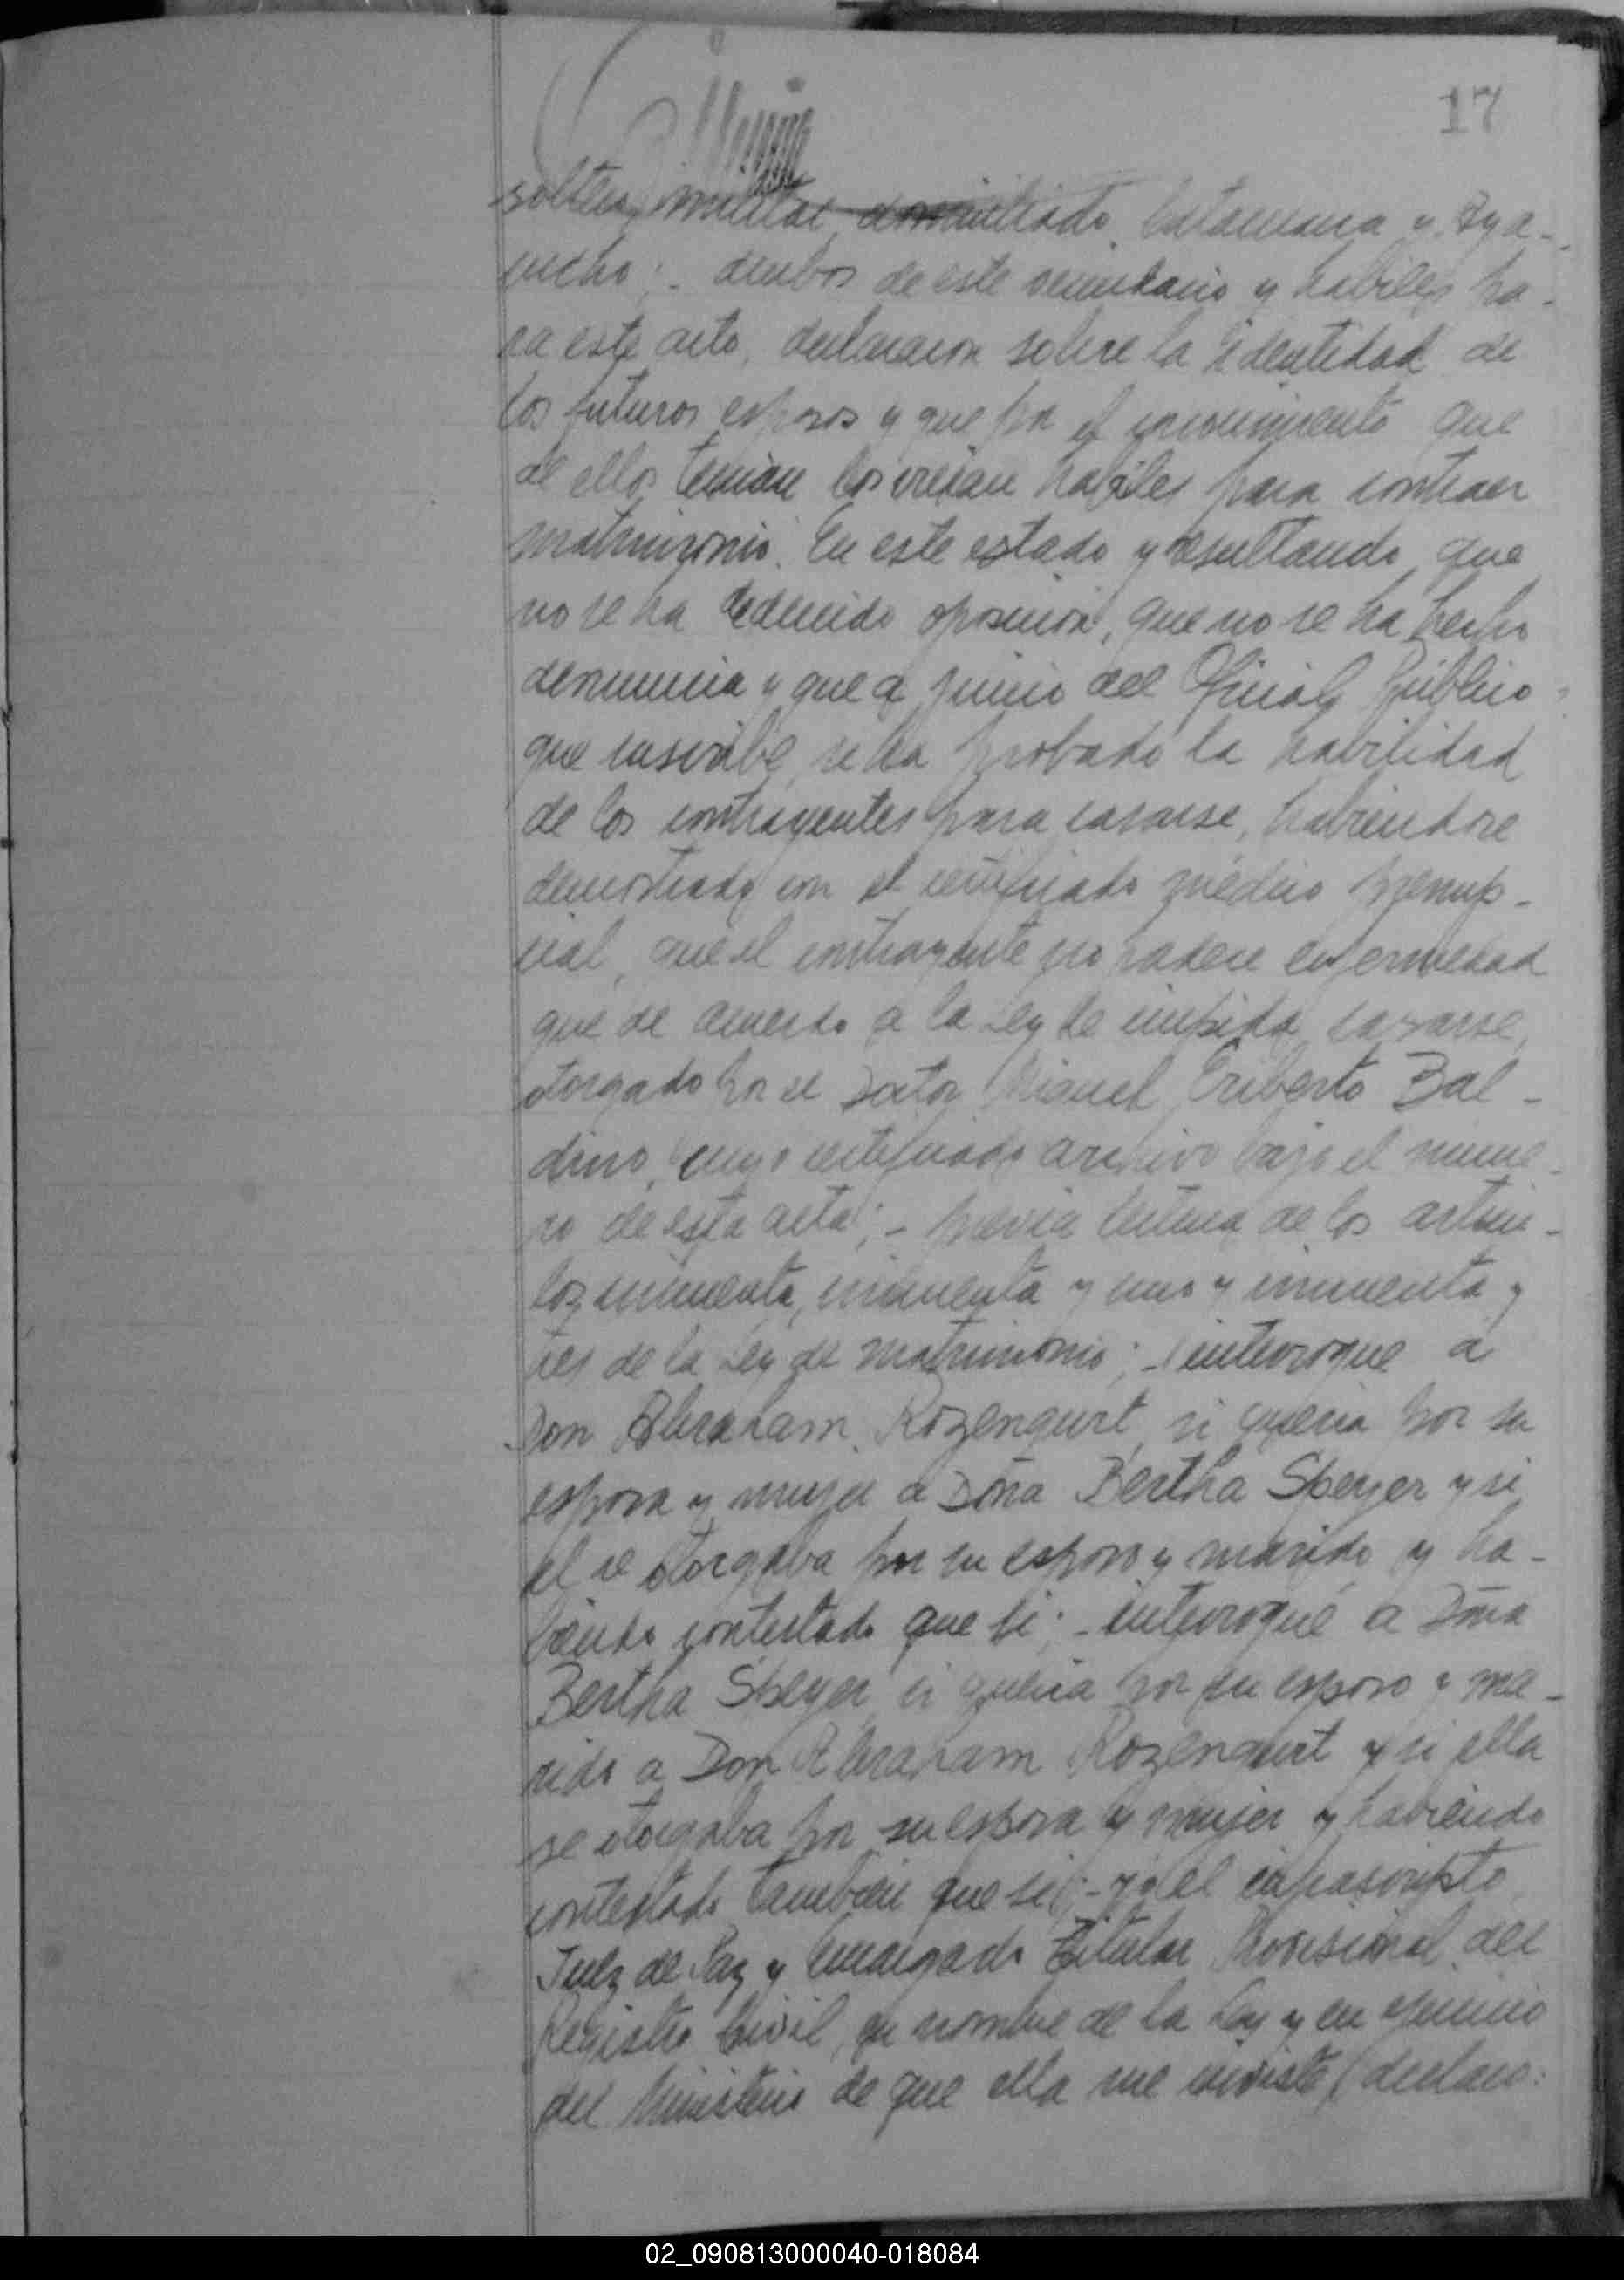 17
soltero, militar, domiciliado, Catamarca y Aya-
cucho; - ambos de este vecindario y hábiles pa-
ra este acto, declararon sobre la identidad de
los futuros esposos y que por el conocimiento que
de ellos tenian los creian hábiles para contraer
matrimonio. En este estado y resultando que
no se ha deducido oposición, que no se ha hecho
denuncia y que a juicio del Oficial Público
que suscribe, se ha probado la habilidad
de los contrayentes para casarse, habiendose
demostrado con el certificado médico prenup-
cial, que el contrayente no padece enfermedad
que de acuerdo a la Ley le impida casarse,
otorgado por el Doctor Miguel Eriberto Bal-
dino, cuyo certificado archivo bajo el núme-
ro de esta acta; - previa lectura de los artícu-
los cincuenta, cincuenta y uno y cincuenta y
tres de la Ley de matrimonio; - interrogue a
Don Abraham Rozengurt, si queria por su
esposa y mujer a Doña Bertha Speyer y si
el se otorgaba por su esposo y marido y ha-
biendo contestado que si; - interrogué a Doña
Bertha Speyer si queria por su esposo y ma-
rido a Don Abraham Rozengurt y si ella
se otorgaba por su esposa y mujer y habiendo
contestado también que si; - yo el infrascripto
Juez de Paz y Encargado Titular Provisional del
Registro Civil, en nombre de la Ley y en ejercicio
del Ministerio de que ella me inviste, declaro:
02_090813000040-018084